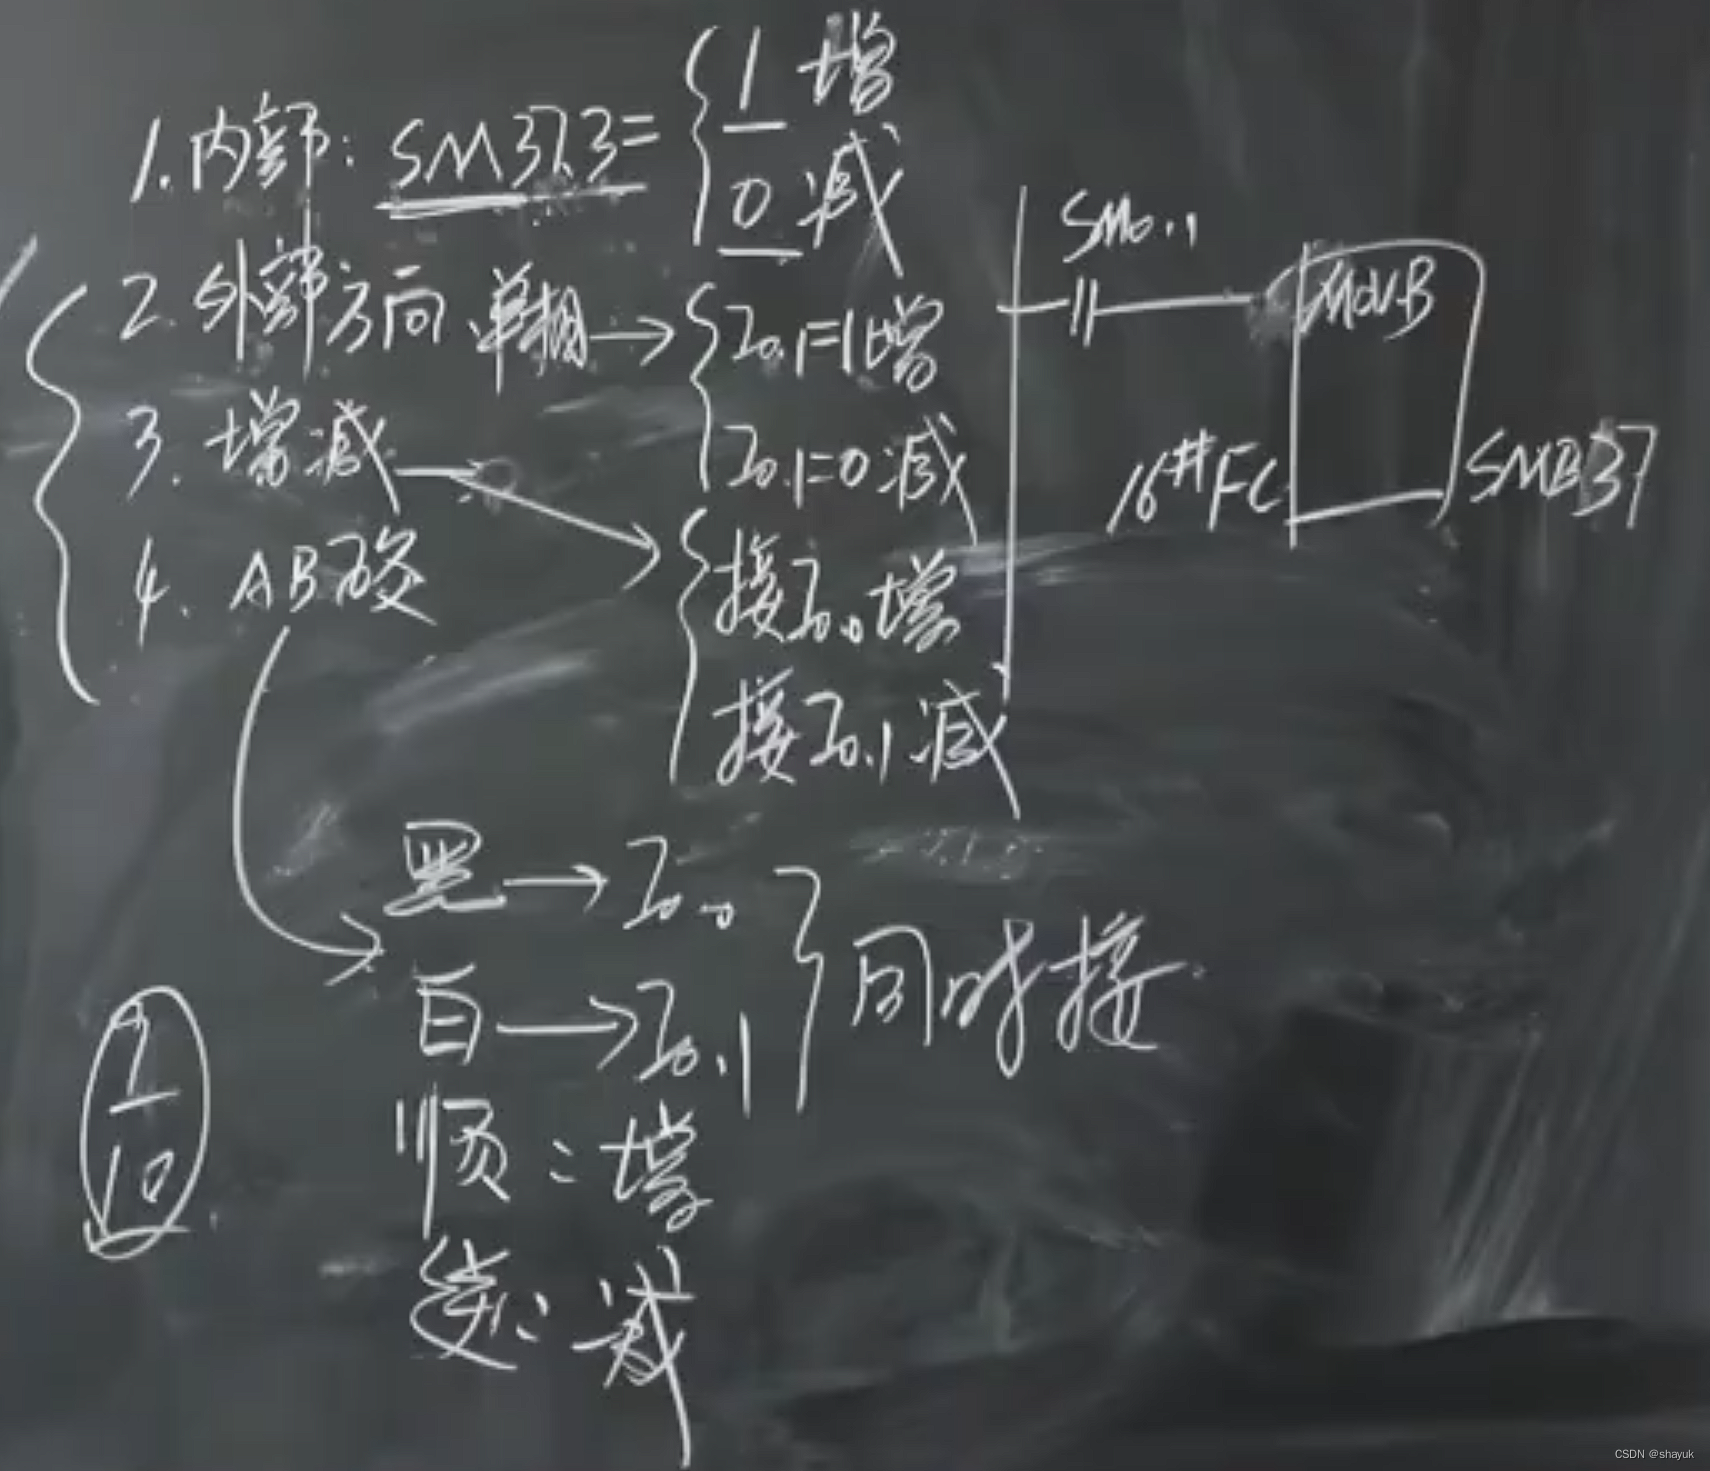 1.内部: SM37.3= { 1 增
0 减
2.外部方向 单相 → { I0.1=1增
I0.1=0 减
3.增减 → { 接I0.0增
接I0.1减
4.AB交
黑 → I0.0
白 → I0.1
} 同时接
顺:增
逆:减
10
SM0.1
MOV-B
16#FC
SMB37
CSDN @shayuk